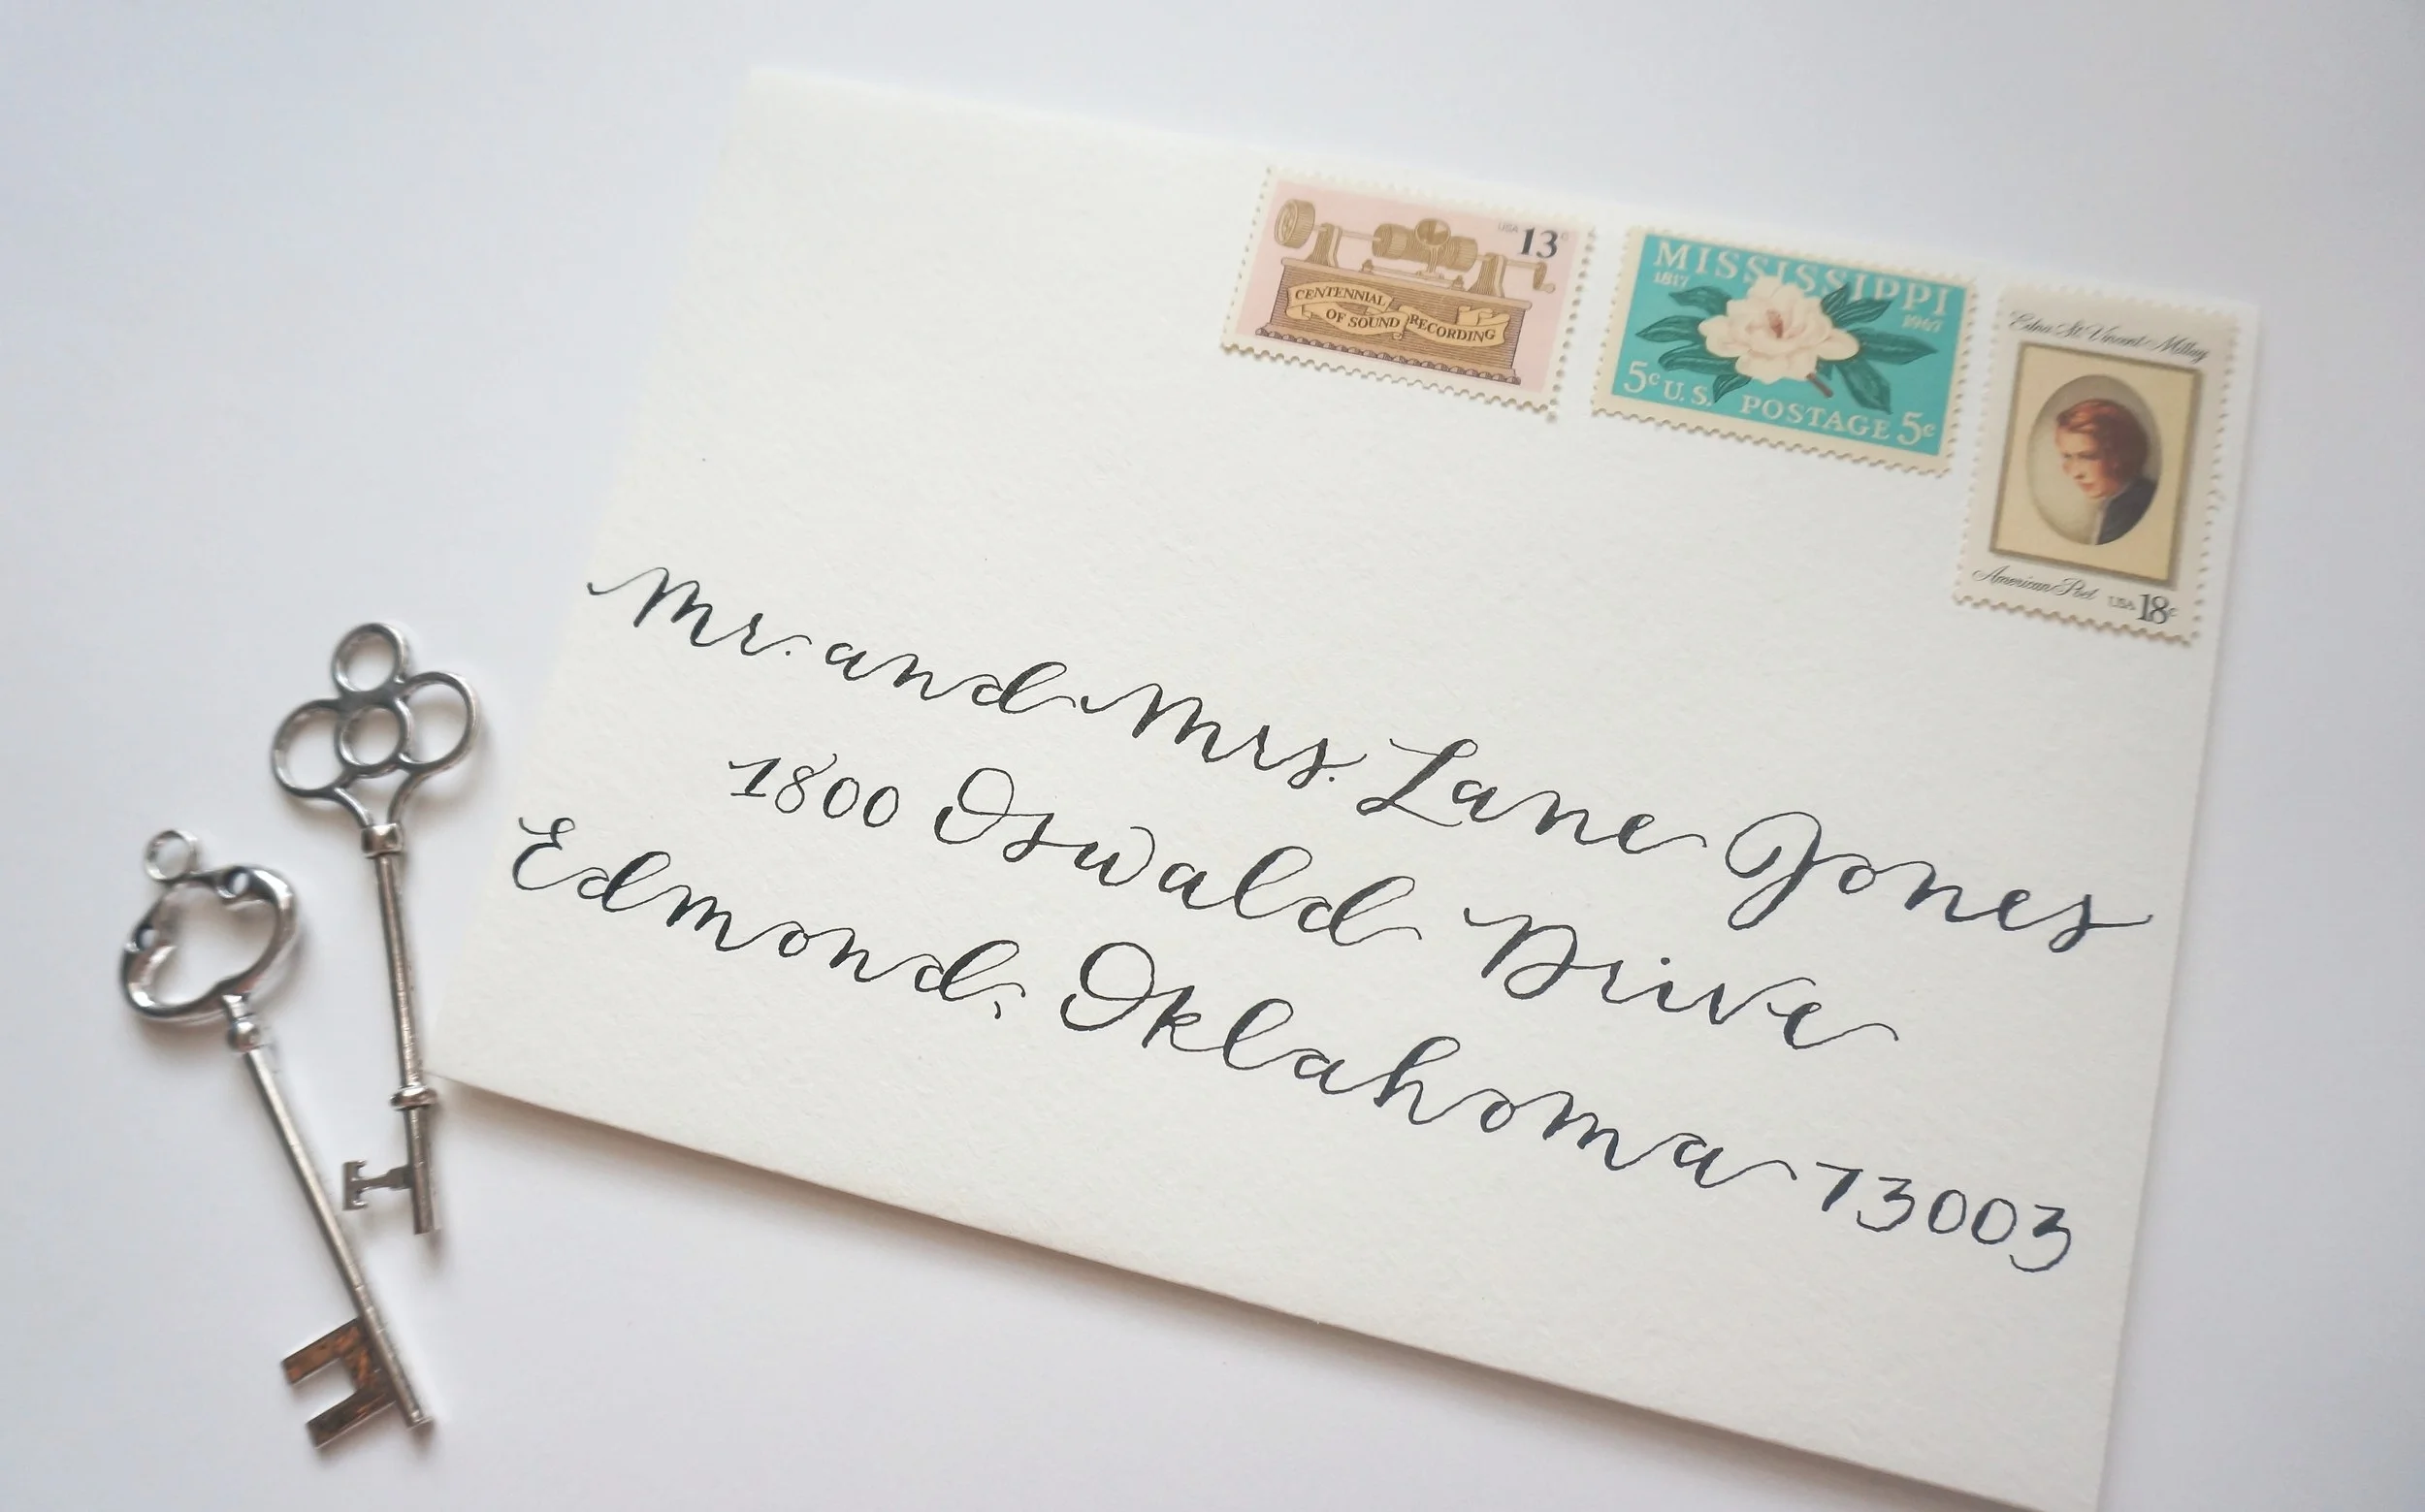 USA 13c
CENTENNIAL
OF SOUND RECORDING
MISSISSIPPI
1817 1967
5c U.S. POSTAGE 5c
Edna St. Vincent Millay
American Poet USA 18c
Mr. and Mrs. Lane Jones
1800 Oswald Drive
Edmond, Oklahoma 73003